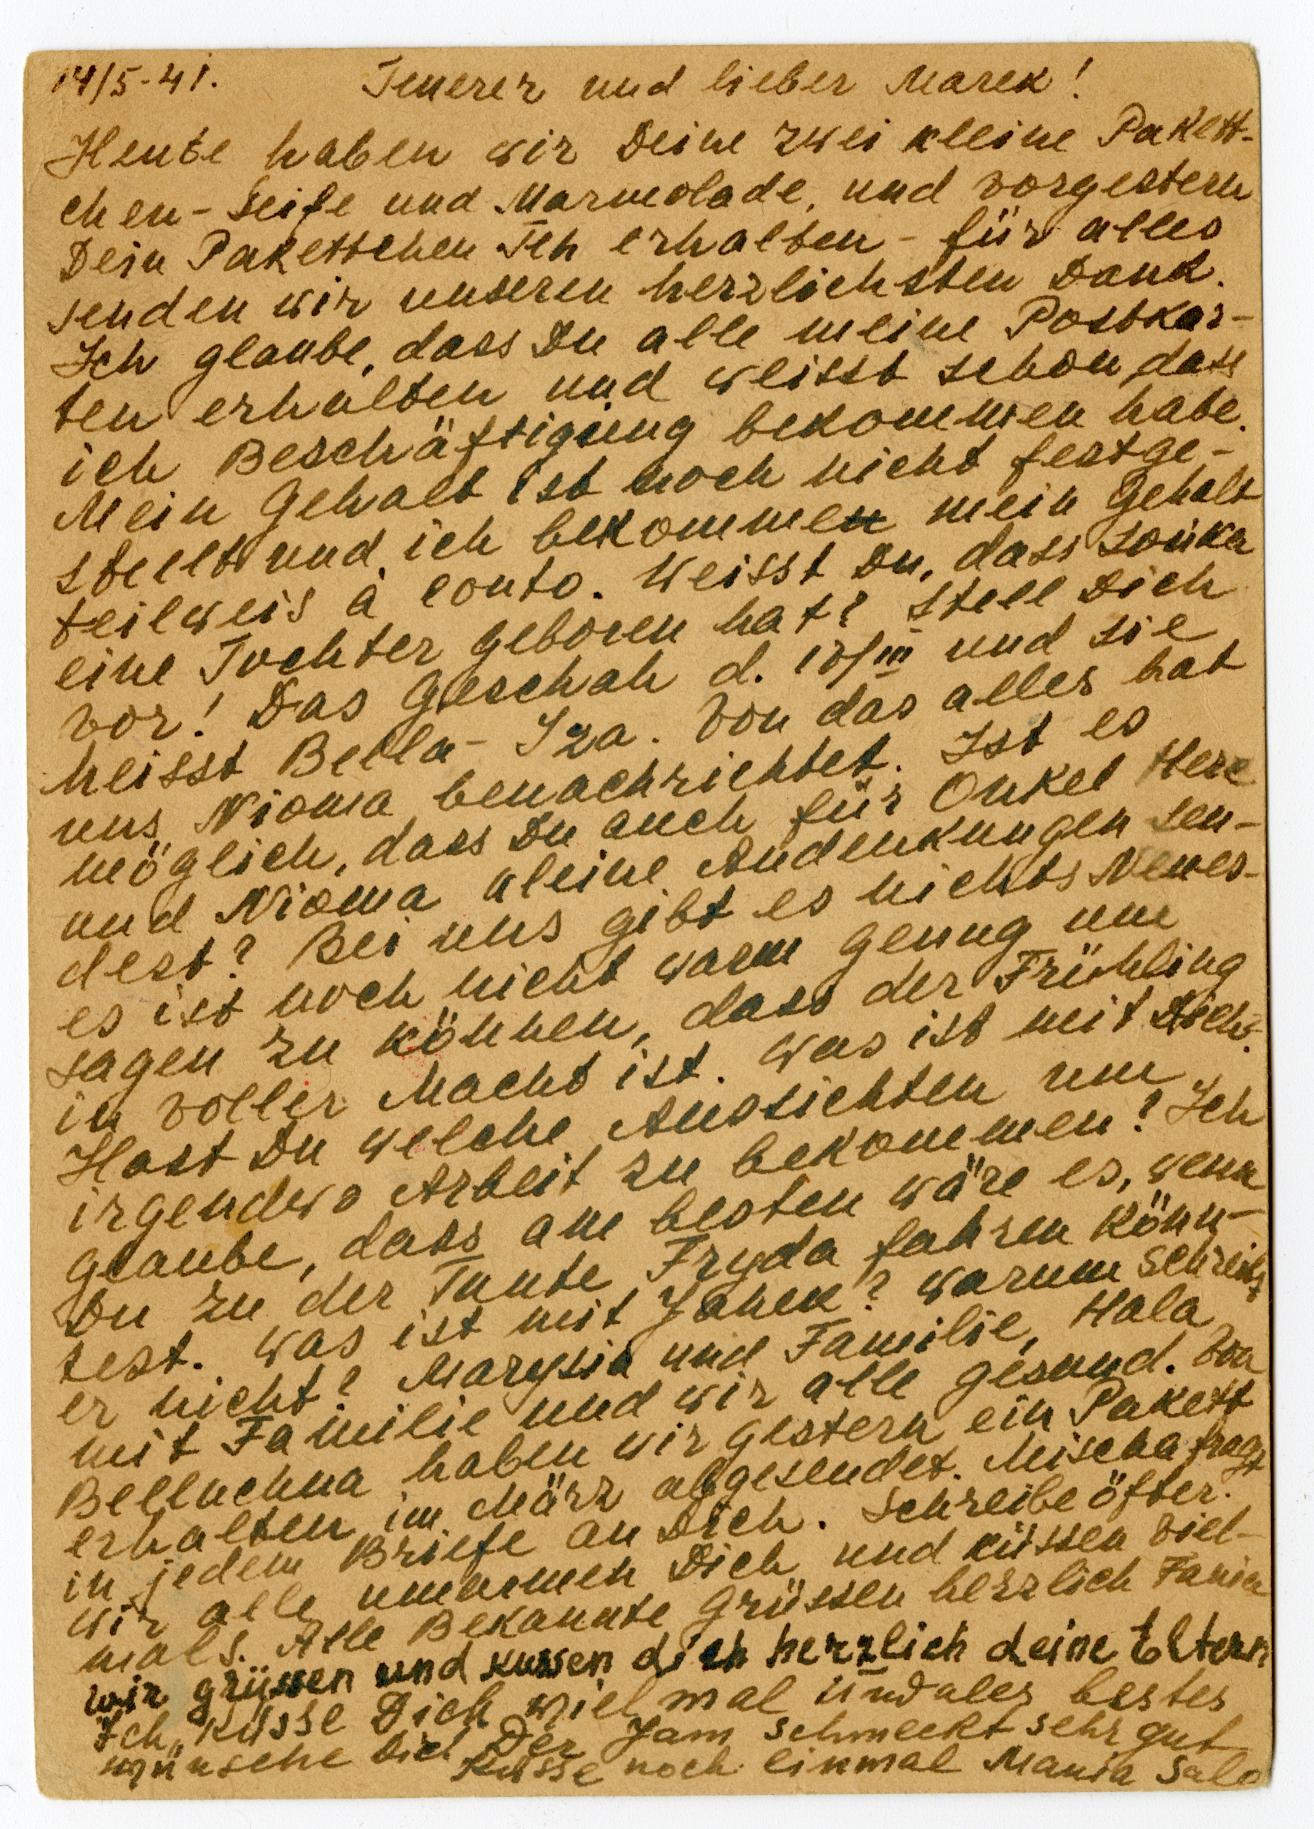 14/5-41. Teuerer und lieber Marek!
Heute haben wir Deine zwei kleine Pakett-
chen - Seife und Marmolade, und vorgestern
Dein Pakettchen Teh erhalten - für alles
senden wir unseren herzlichsten Dank.
Ich glaube, dass Du alle meine Postkar-
ten erhalten und weisst schon, dass
ich Beschäftigung bekommen habe.
Mein Gehalt ist noch nicht festge-
stellt und ich bekommen mein Gehalt
teilweis à conto. Weisst Du, dass Sonka
eine Tochter geboren hat? Stell Dich
vor! Das geschah d. /III und sie
heisst Bella - Iza. Von das alles hat
uns Nioma benachrichtet. Ist es
möglich, dass Du auch für Onkel Herc
und Nioma kleine Andenkungen sen-
dest? Bei uns gibt es nichts Neues-
es ist noch nicht warm genug um
sagen zu können, dass der Frühling
in voller Macht ist. Was ist mit Dich?
Hast Du welche Aussichten um
irgendwo Arbeit zu bekommen? Ich
glaube, dass am besten wäre es, wenn
Du zu der Tante Fryda fahren könn-
test. Was ist mit Janek? Warum schreibt
er nicht? Marysia und Familie, Hala
mit Familie und wir alle gesund. Von
Belluchna haben wir gestern ein Pakett
erhalten im März abgesendet. Mischa fragt
in jedem Briefe an Dich. Schreibe öfter.
Wir alle umnemen Dich und küssen viel-
mals. Alle Bekannte grüssen herzlich Fania
wir grüssen und kussen dich herzlich deine Eltern
Ich küsse Dich viel mal und ales bestes
wünsche Dich Der Jam schmeckt sehr gut
Küsse noch einmal Mania Sala